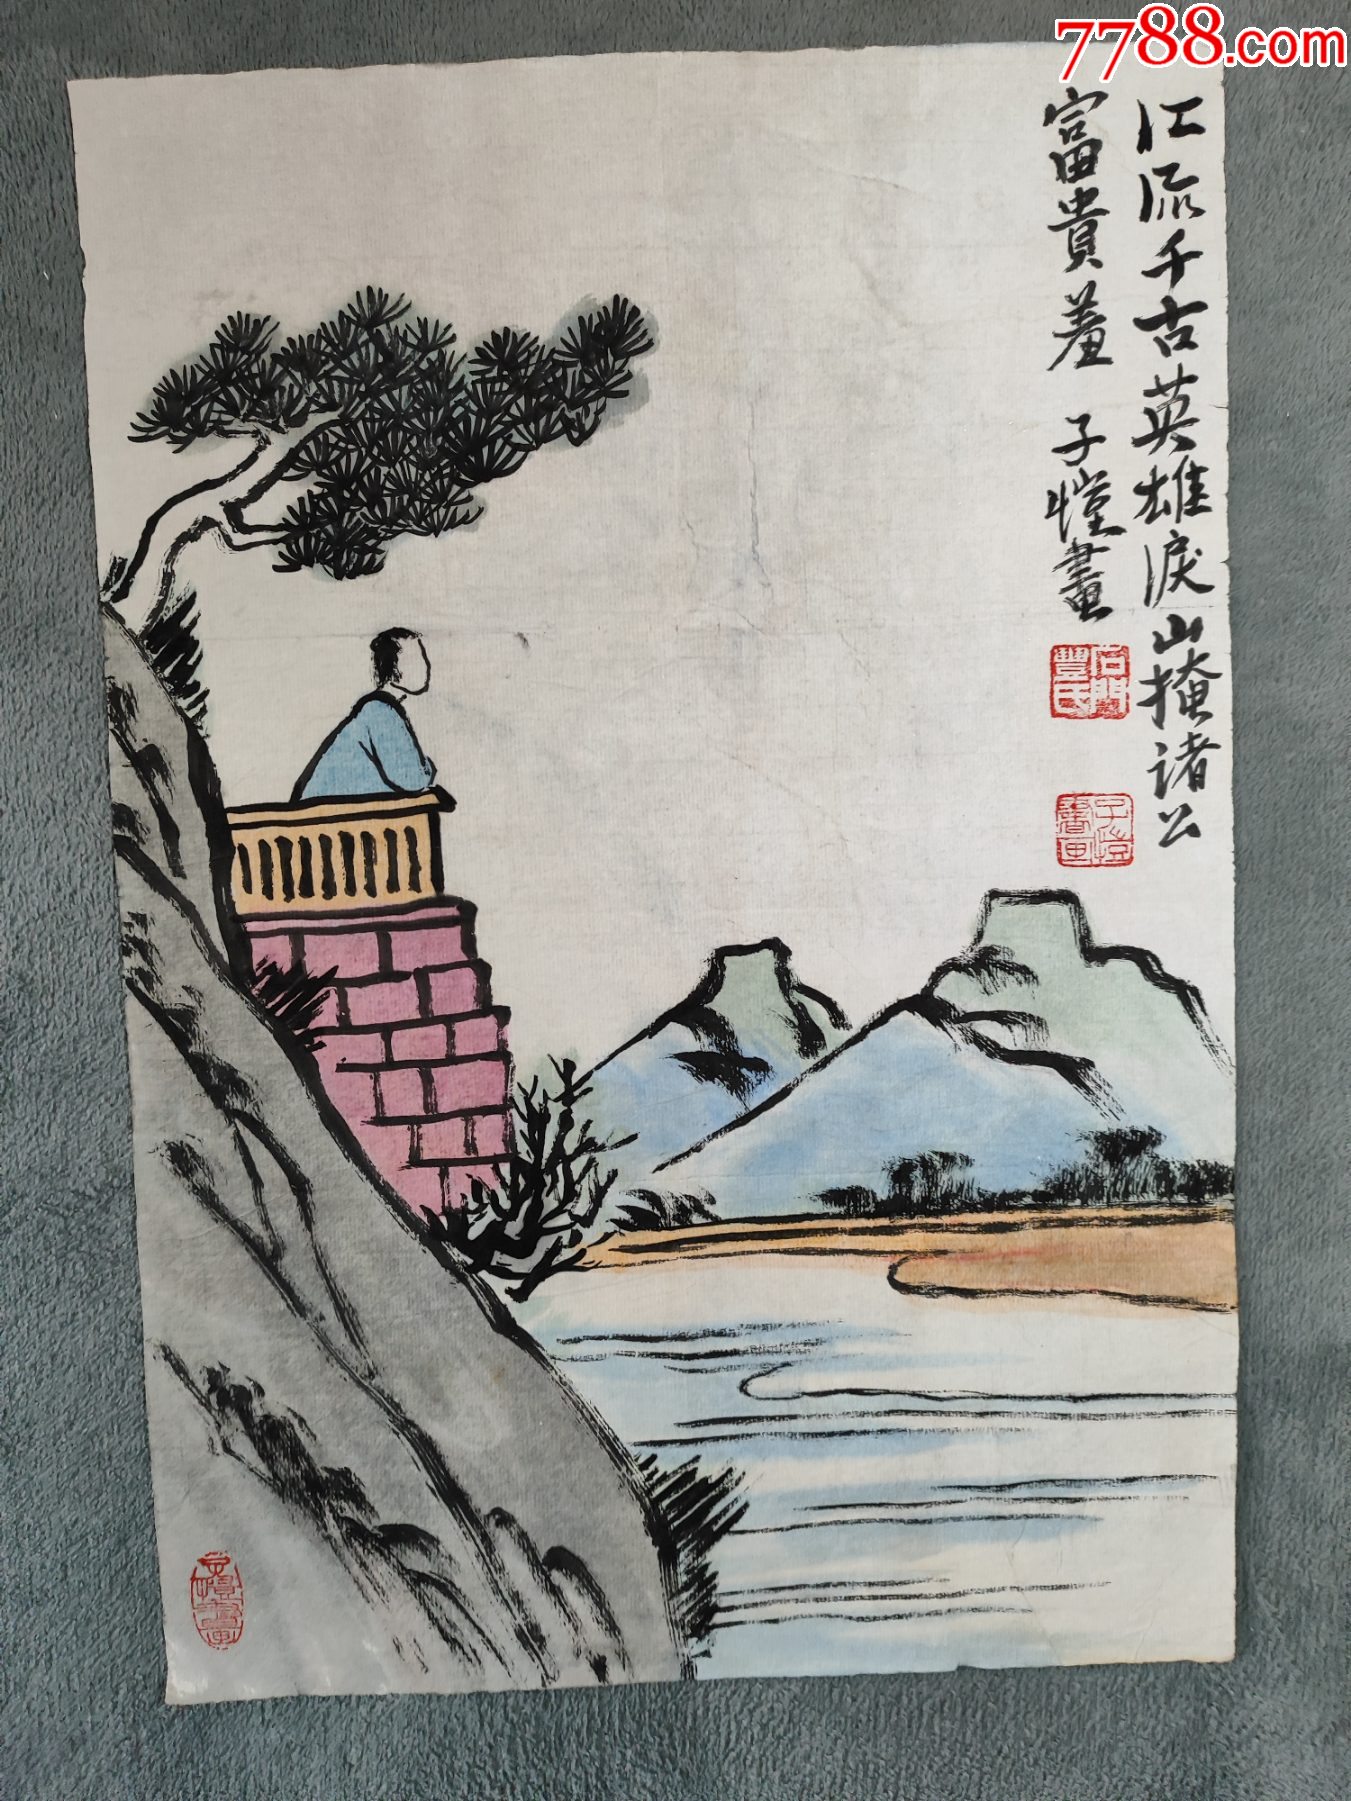 7788.com
江流千古英雄淚山掩诸公
富貴羞 子愷畫
石門豐氏
子愷書画